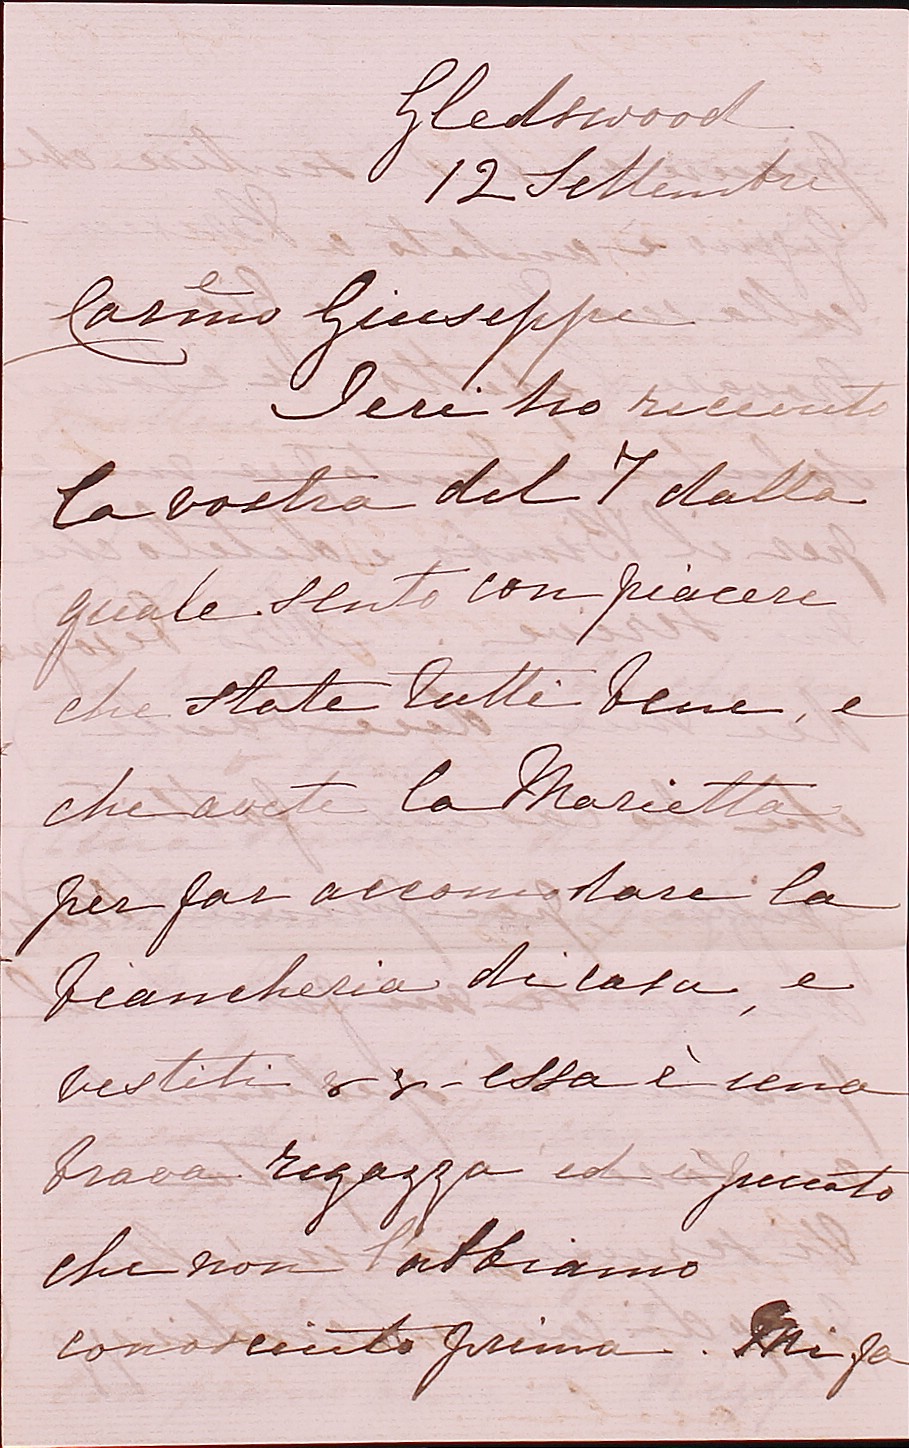 Gledswood
12 Settembre
Carm̃o Giuseppe
Ieri ho ricevuto
la vostra del 7 dalla
quale sento con piacere
che state tutti bene, e
che avete la Marietta
per far accomodare la
biancheria di casa, e
vestiti &.&. - essa è una
brava ragazza ed è peccato
che non l'abbiamo
conosciuto prima. Mi fa